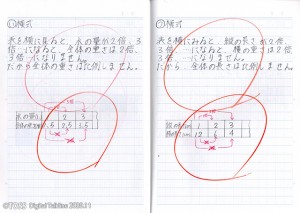 ①横式
表を横に見ると、水の量が2倍、3
倍…になると、全体の重さは2倍、
3倍…になりません。
だから全体の重さは比例しません。
水の量(L) 1 2 3
1.5 2.5 3.5
②横式
表を横にみると、縦の長さが2倍、
3倍…になると、横の重さは2倍
3倍…になりません。
だから、全体の長さは比例しません。
1 2 3
12 6 4
©TOSS Digital Tables 2020.11